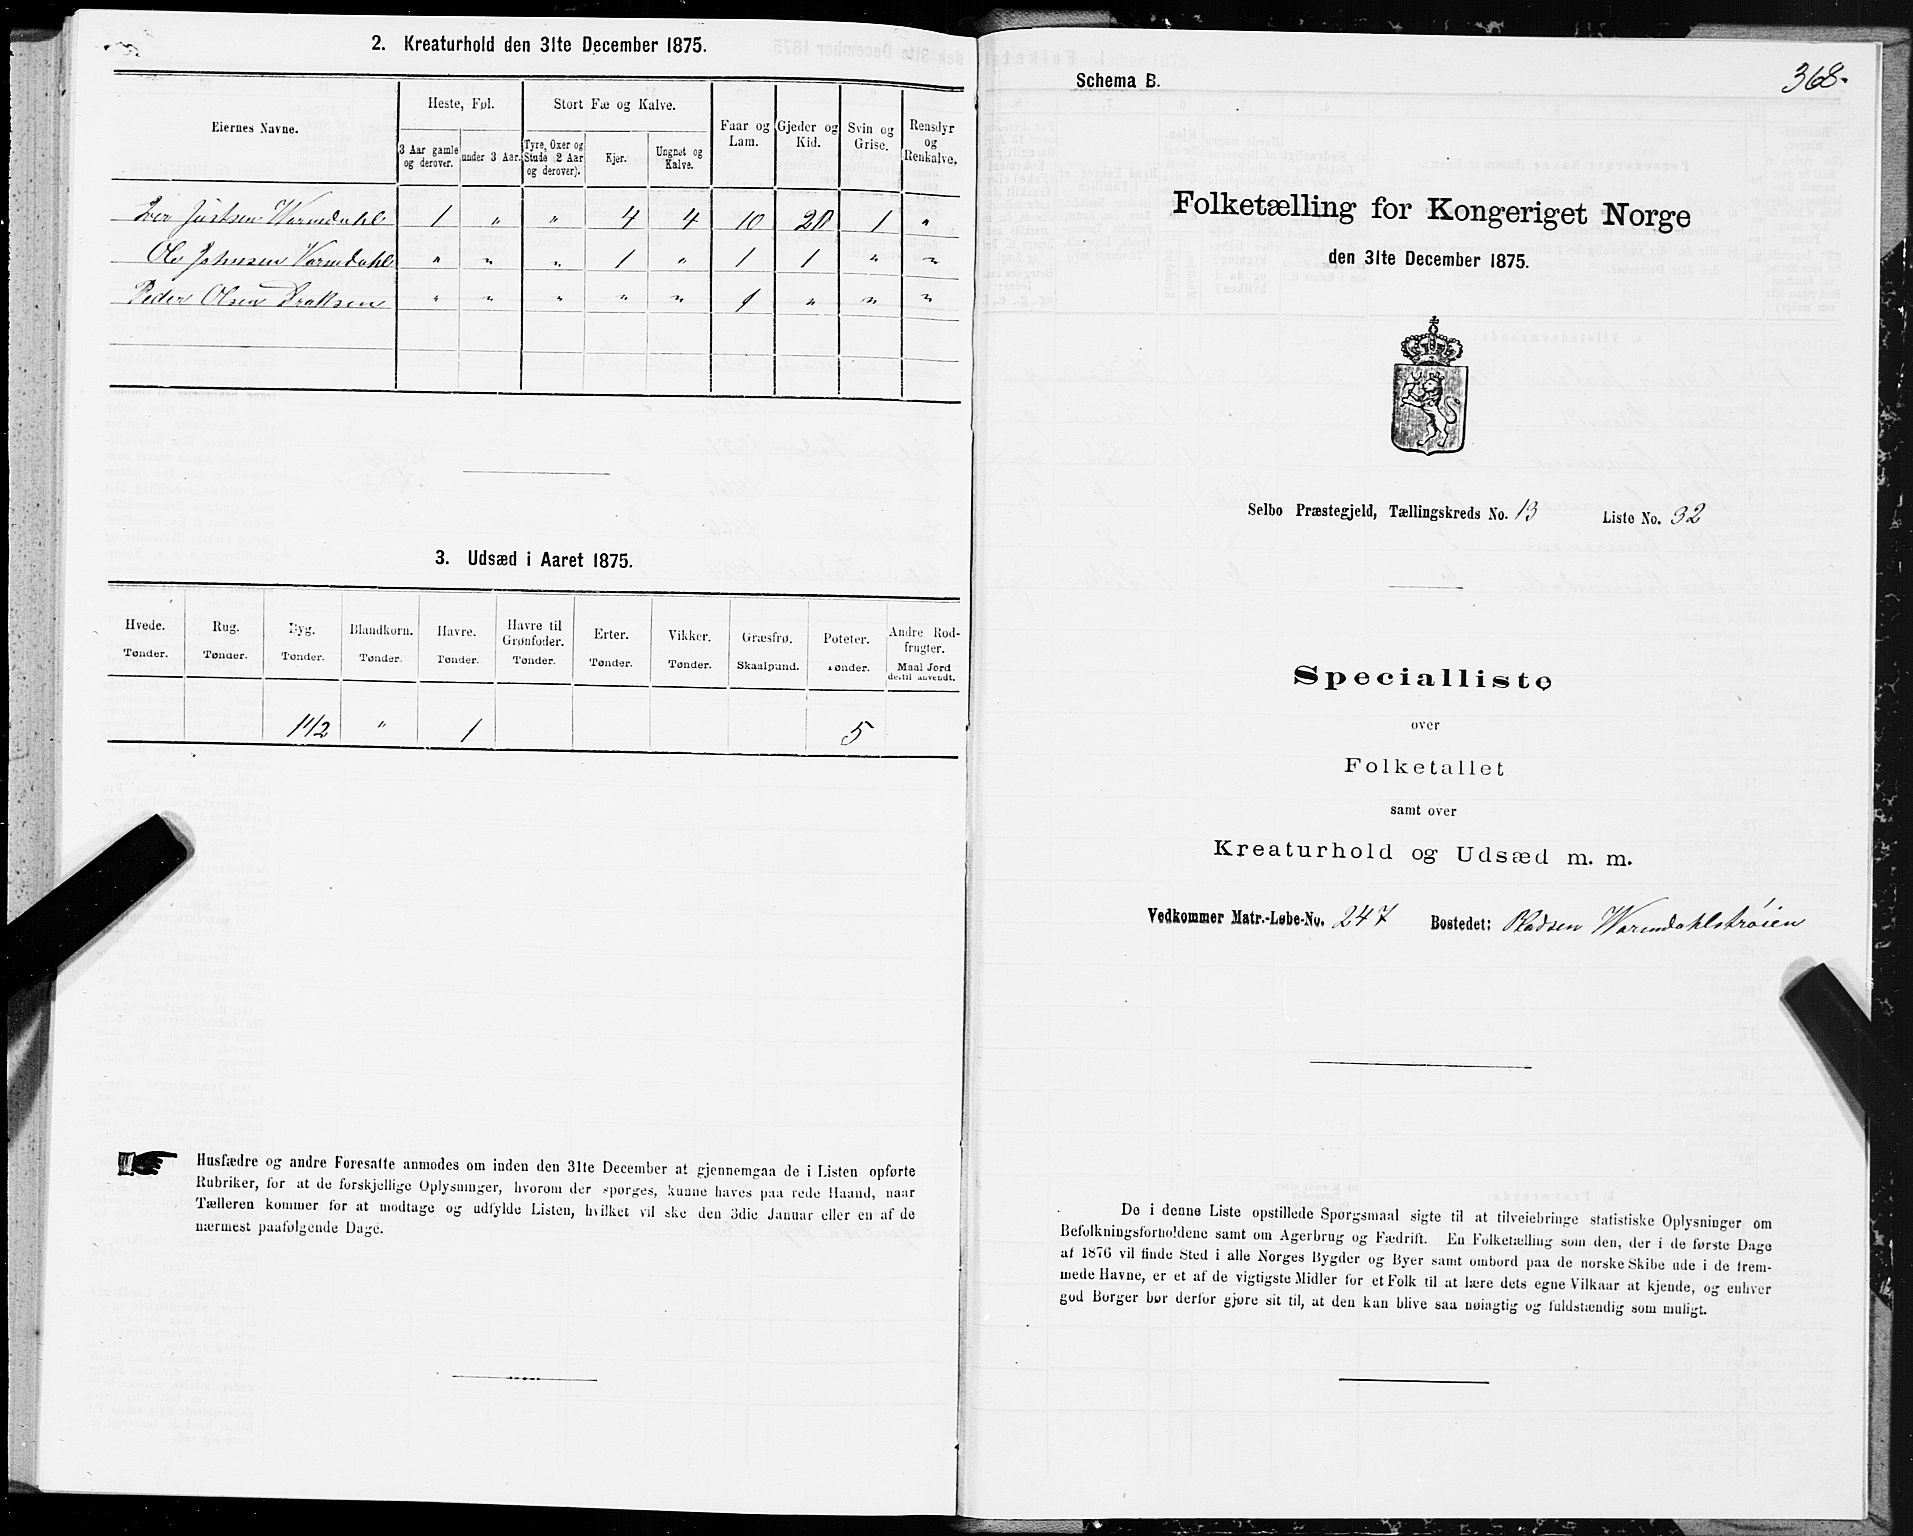 2. Kreaturhold den 31te December 1875.
Eiernes Navne.
Heste, Føl.
Stort Fæ og Kalve.
Faar og Lam.
Gjeder og Kid.
Svin og Grise.
Rensdyr og Renkalve.
3 Aar gamle og derover.
under 3 Aar.
Tyre, Oxer og Stude (2 Aar og derover).
Kjer.
Ungnøt og Kalve.
Iver Justsen Warmdahl 1 " " 4 4 10 20 1 "
Ole Johnsen Varmdahl " " " 1 " 1 1 " "
Peder Olsen " " " " " 1 " " "
3. Udsæd i Aaret 1875.
Hvede. Rug. Byg. Blandkorn. Havre. Havre til Grønfoder. Erter. Vikker. Græsfrø. Poteter. Andre Rodfrugter.
Tønder. Tønder. Tønder. Tønder. Tønder. Tønder. Tønder. Tønder. Skaalpund. Tønder. Maal Jord dertil anvendt.
1 1/2 " 1 5
Husfædre og andre Foresatte anmodes om inden den 31te December at gjennemgaa de i Listen opførte
Rubriker, for at de forskjellige Oplysninger, hvorom der spørges, kunne haves paa rede Haand, naar
Tælleren kommer for at modtage og udfylde Listen, hvilket vil ske den 3die Januar eller en af de
nærmest paafølgende Dage.
368.
Schema B.
Folketælling for Kongeriget Norge
den 31te December 1875.
Selbo Præstegjeld, Tællingskreds No. 13 Liste No. 32
Specialliste
over
Folketallet
samt over
Kreaturhold og Udsæd m. m.
Vedkommer Matr.-Løbe-No. 247 Bostedet: Pladsen Warmdahlstrøien
De i denne Liste opstillede Spørgsmaal sigte til at tilveiebringe statistiske Oplysninger om
Befolkningsforholdene samt om Agerbrug og Fædrift. En Folketælling som den, der i de første Dage
af 1876 vil finde Sted i alle Norges Bygder og Byer samt ombord paa de norske Skibe ude i de frem-
mede Havne, er et af de vigtigste Midler for et Folk til at lære dets egne Vilkaar at kjende, og enhver
god Borger bør derfor gjøre sit til, at den kan blive saa nøiagtig og fuldstændig som muligt.